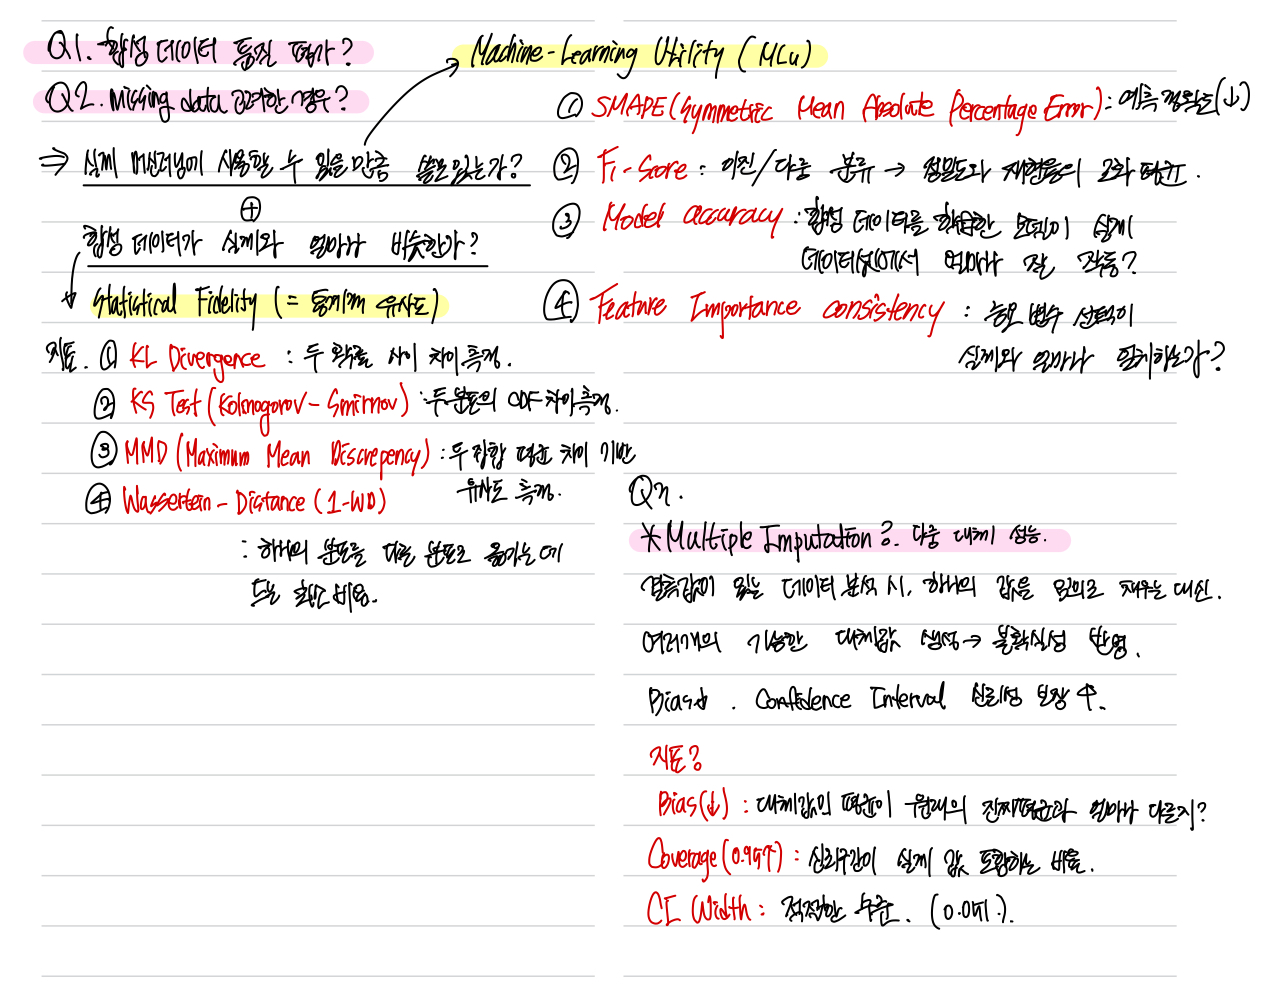 Q1. 합성 데이터 품질 평가?
Q2. Missing data 고려한 경우?
⇒ 실제 머신러닝이 사용할 수 있을 만큼 쓸모있는가?
⊕
합성 데이터가 실제와 얼마나 비슷한가?
Statistical Fidelity (= 통계적 유사도)
지표. ① KL Divergence : 두 확률 사이 차이 측정.
② KS Test (Kolmogorov-Smirnov) : 두 분포의 CDF 차이 측정.
③ MMD (Maximum Mean Discrepency) : 두 집합 평균 차이 기반
유사도 측정.
④ Wasserstein-Distance (1-WD)
: 하나의 분포를 다른 분포로 옮기는 데
드는 최소 비용.
Machine-Learning Utility (MLu)
① SMAPE (Symmetric Mean Absolute Percentage Error) : 예측 정확도(↓)
② F1-Score : 이진/다중 분류 → 정밀도와 재현율의 조화 평균.
③ Model accuracy : 합성 데이터를 학습한 모델이 실제
데이터셋에서 얼마나 잘 작동?
④ Feature Importance consistency : 중요 변수 선택이
실제와 얼마나 일치하는가?
Q2.
* Multiple Imputation?. 다중 대체 성능.
결측값이 있는 데이터 분석 시, 하나의 값을 임의로 채우는 대신.
여러개의 가능한 대체값 생성 → 불확실성 반영.
Bias↓ . Confidence Interval 신뢰성 보장 ↑.
지표?
Bias(↓) : 대체값의 평균이 원래의 진짜평균과 얼마나 다른지?
Coverage (0.95↑) : 신뢰구간이 실제 값 포함하는 비율.
CI Width : 적절한 수준.